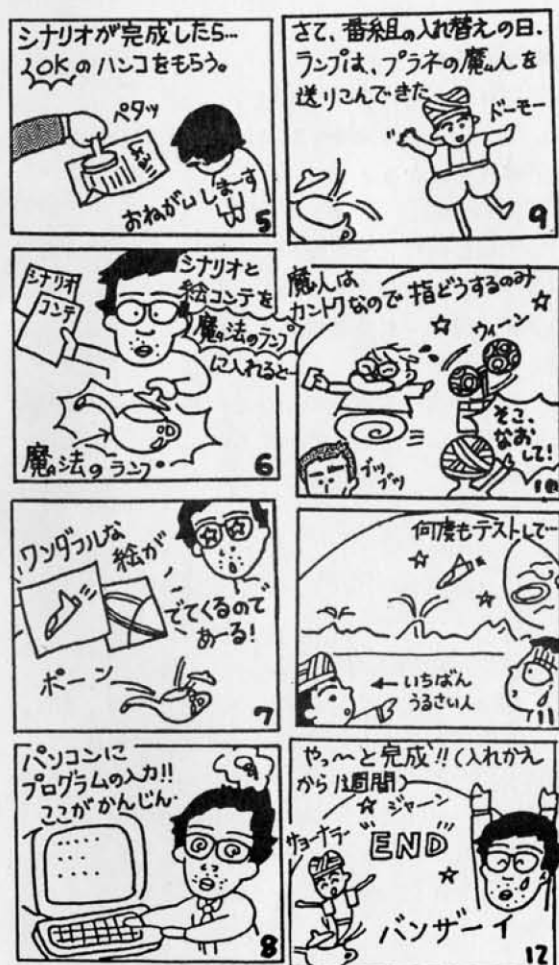 シナリオが完成したら…
OKのハンコをもらう。
ペタッ
おねがいしまーす
5
シナリオ
コンテ
シナリオと
絵コンテを
魔法のランプ
に入れると…
魔法のランプ
6
ワンダフルな
絵が
でてくるので
あーる!
ポーン
7
パソコンに
プログラムの入力!!
ここがかんじん.
8
さて、番組の入れ替えの日.
ランプは、プラネの魔人を
送りこんできた
ドーモー
9
魔人は
カントクなので指どうするのみ
ウィーン
そこ
なお
して!
ブツブツ
10
何度もテストして…
←いちばん
うるさい人
11
やっ〜と完成!!(入れかえ
から1週間)
ジャーン
サヨーナラー
"END"
バンザーイ
12